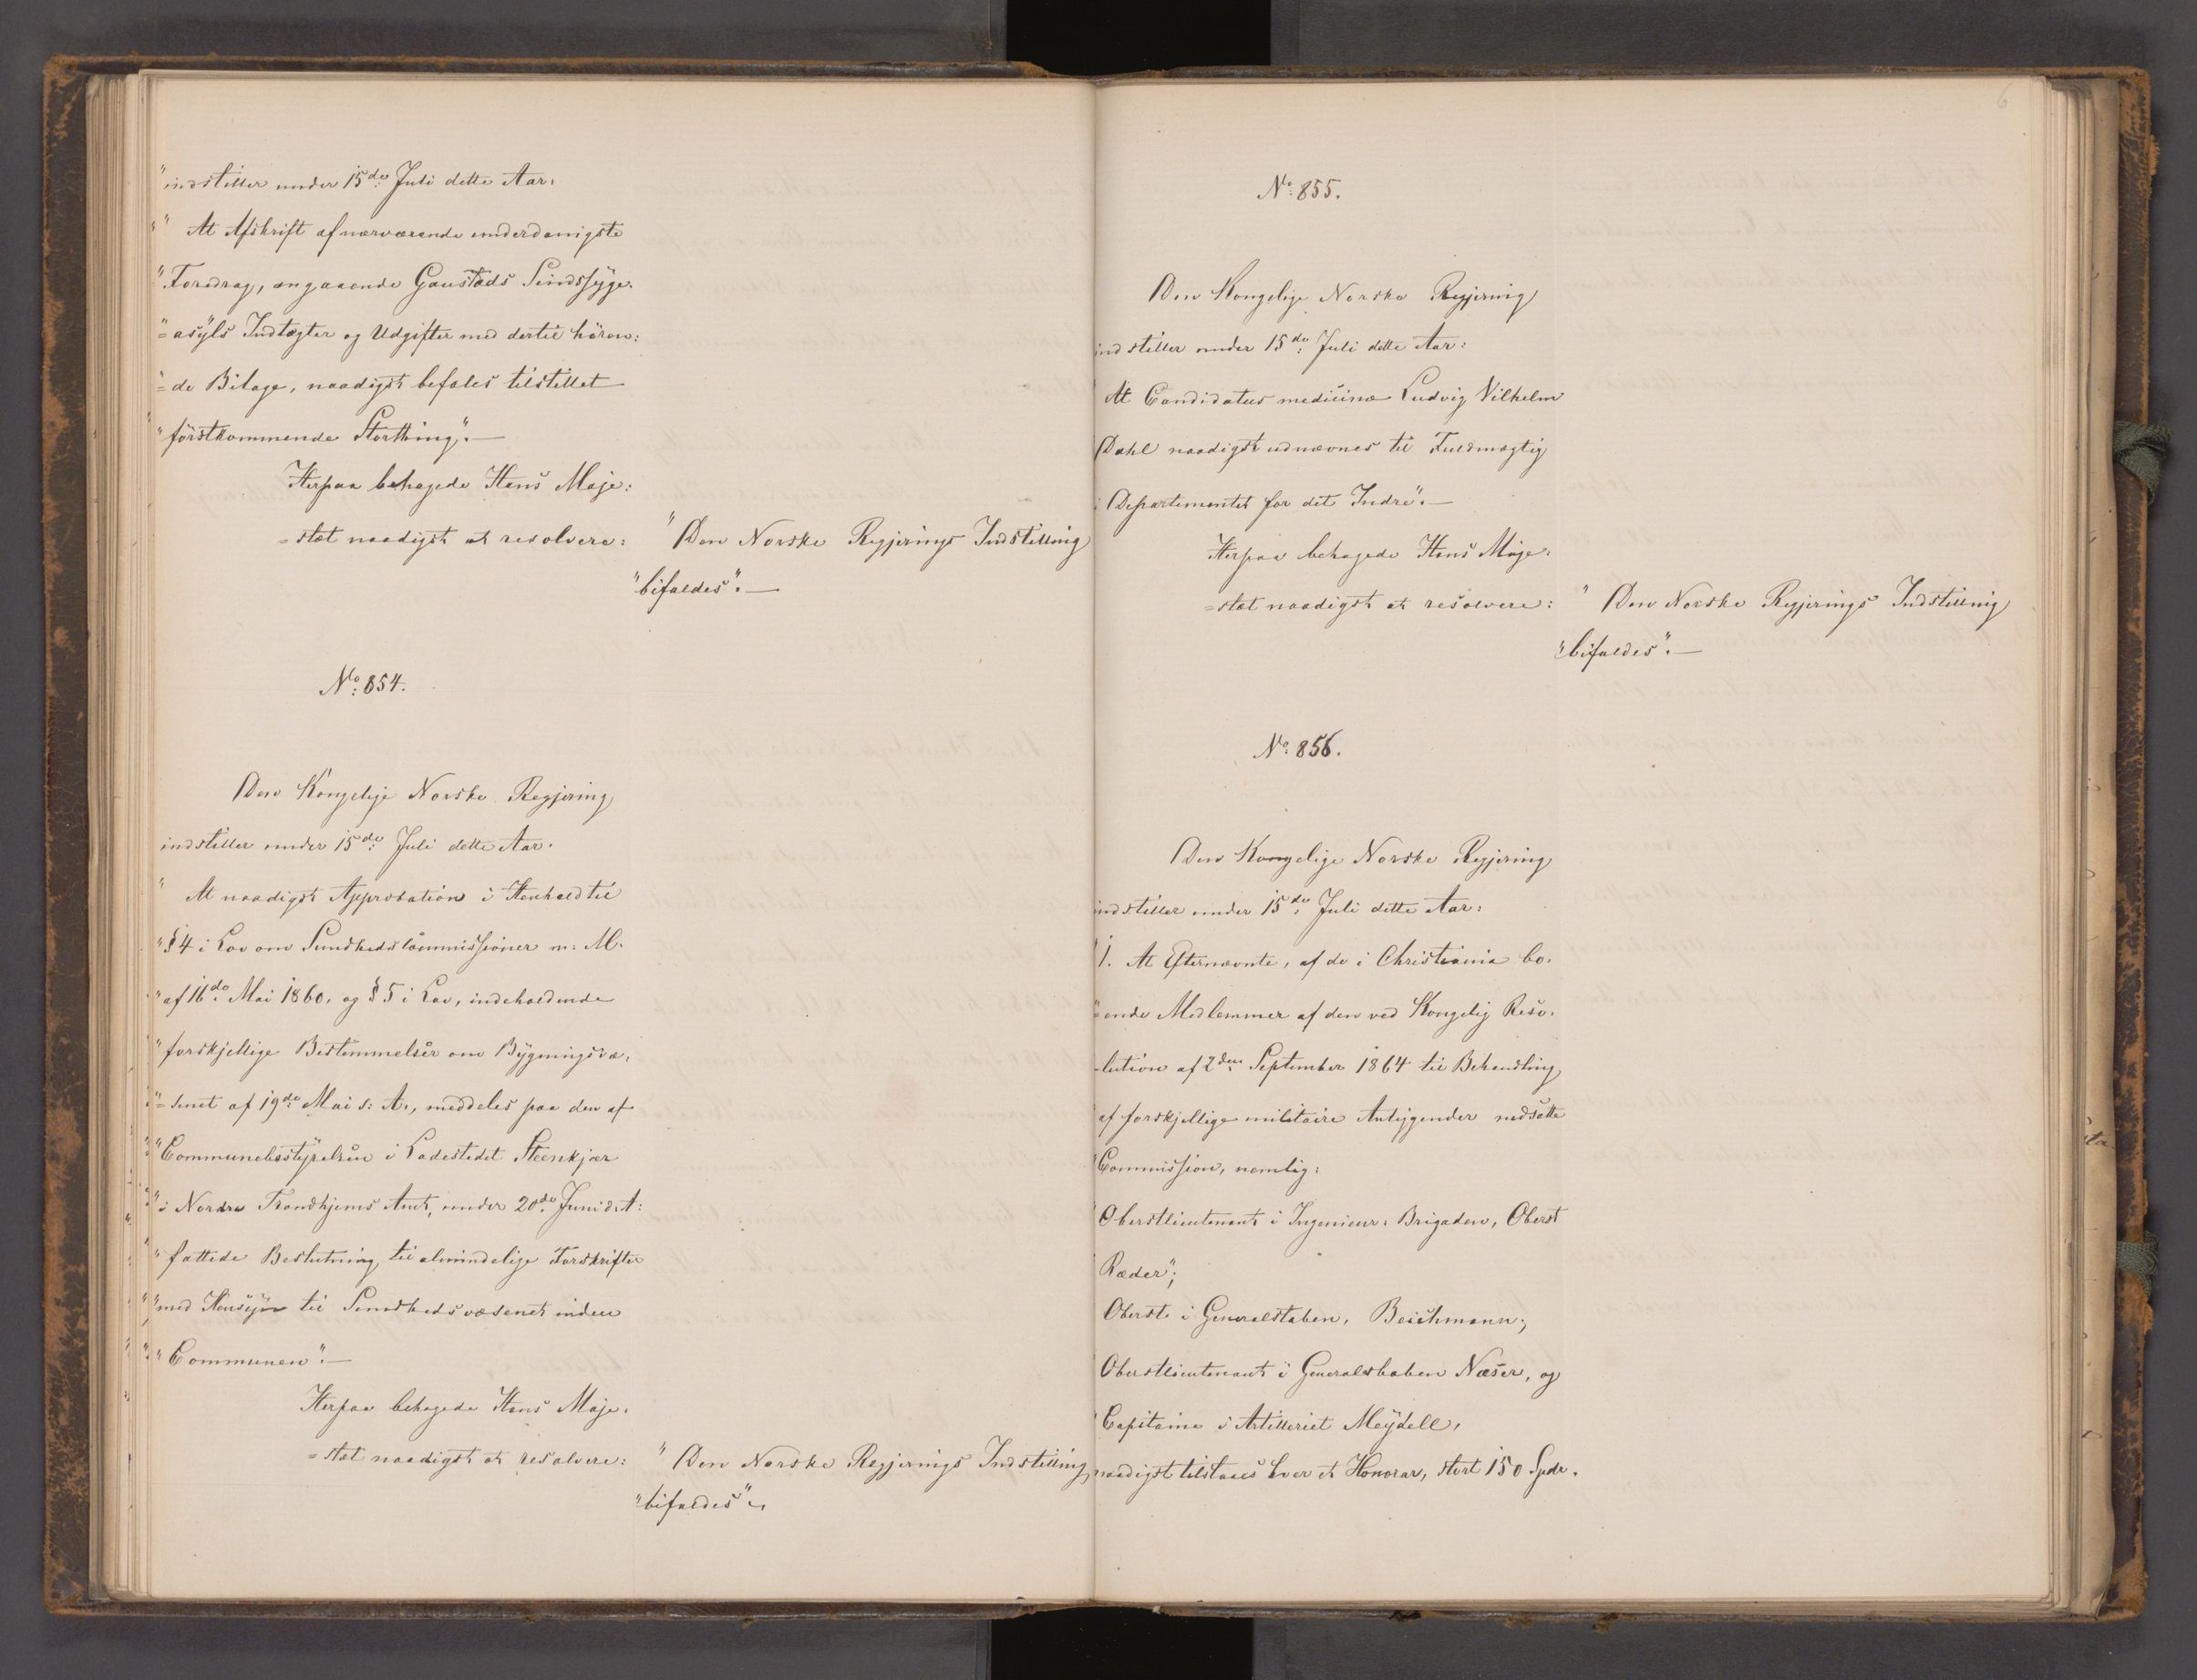 "indstiller under 15de Juli dette Aar:
"" At Afskrift af nærværende underdanigste
"Foredrag, angaaende Gaustads Sindssyge-
"=asyls Indtægter og Udgifter med dertil høren:
"=de Bilage, naadigst befales tilstillet
"førstkommende Storthing".—
Herpaa behagede Hans Maje:
=stæt naadigst at resolvere:
"Den Norske Regjerings Indstilling
"bifaldes".—
No: 854.
Den Kongelige Norske Regjering
indstiller under 15de Juli dette Aar.
" At naadigst Approbation i Henhold til
"§ 4 i Lov om Sundhedscommissioner m: M.
"af 16de Mai 1860, og § 5 i Lov, indeholdende
"forskjellige Bestemmelser om Bygningsvæ-
"=senet af 19de Mai s: A., meddeles paa den af
"Communebestyrelsen i Ladestedet Steenkjær
"i Nordre Trondhjems Amt, under 20de Juni d. A:
"fattede Beslutning til almindelige Forskrifter
"med Hensyn til Sundhedsvæsenet inden
"Communen".—
Herpaa behagede Hans Maje-
=stæt naadigst at resolvere:
"Den Norske Regjerings Indstilling
"bifaldes".
6
No: 855.
Den Kongelige Norske Regjering
indstiller under 15de Juli dette Aar:
At Candidatus medicinæ Ludvig Vilhelm
Dahl naadigst udnævnes til Fuldmægtig
i Departementet for det Indre".—
Herpaa behagede Hans Maje-
=stæt naadigst at resolvere:
" Den Norske Regjerings Indstilling
"bifaldes".—
No: 856.
Den Kongelige Norske Regjering
indstiller under 15de Juli dette Aar:
"1. At Efternævnte, af de i Christiania bo-
"=ende Medlemmer af den ved Kongelig Reso-
-lution af 2den September 1864 til Behandling
af forskjellige militaire Anliggender nedsatte
"Commission, nemlig:
"Oberstlieutenant i Ingenieur-Brigaden, Oberst
Ræder";
Oberst i Generalstaben, Beichmann;
Oberstlieutenant i Generalstaben Næser, og
"Capitaine i Artilleriet Meydell,
naadigst tilstaaes hver et Honorar, stort 150 Spdr.